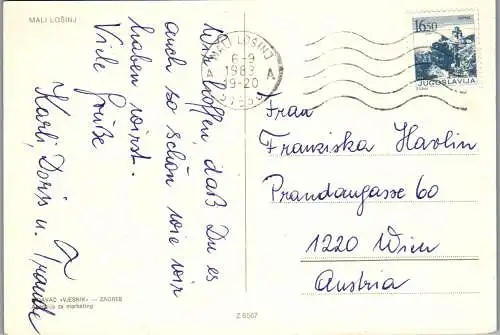 MALI LOŠINJ
Wir hoffen, daß Du es
auch so schön wie wir
haben wirst.
Viele Grüße
Karli, Doris u.
MALI LOŠINJ
6-9
1983
19-20
A
16.50
JUGOSLAVIJA
Frau
Franziska Havlin
Prandaugasse 60
1220 Wien
Austria
«VJESNIK» — ZAGREB
za marketing
Z 6567